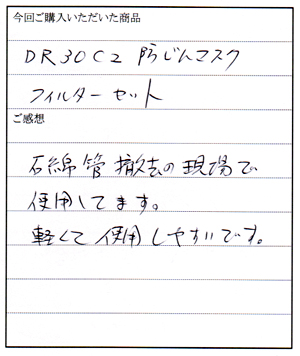 今回ご購入いただいた商品
DR30C2 防じんマスク
フィルターセット
ご感想
石綿管撤去の現場で
使用してます。
軽くて使用しやすいです。